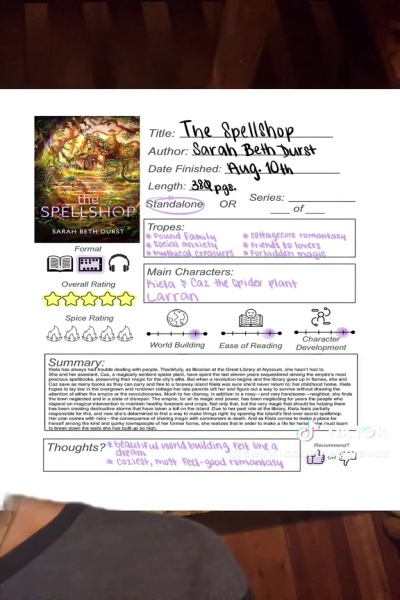 Title: The Spellshop
Author: Sarah Beth Durst
Date Finished: Aug. 10th
Length: 382 pgs.
Standalone OR Series:
of
the
SPELLSHOP
SARAH BETH DURST
Format
Overall Rating
Spice Rating
Tropes:
* Found Family
* social anxiety
* mythical creatures
* cottagecore romantasy
* friends to lovers
* forbidden magic
Main Characters:
Kiela & Caz the spider plant
Larran
World Building
Ease of Reading
Character
Development
Summary:
Kiela has always had trouble dealing with people. Thankfully, as librarian at the Great Library of Alyssium, she hasn't had to.
She and her assistant, Caz, a magically sentient spider plant, have spent the last eleven years sequestered among the empire's most
precious spellbooks, preserving their magic for the city's elite. But when a revolution begins and the library goes up in flames, she and
Caz save as many books as they can carry and flee to a faraway island Kiela was sure she'd never return to: her childhood home. Kiela
hopes to lay low in the overgrown and rundown cottage her late parents left her and figure out a way to survive without drawing the
attention of either the empire or the revolutionaries. Much to her dismay, in addition to a nosy—and very handsome—neighbor, she finds
the town neglected and in a state of disrepair. The empire, for all its magic and power, has been neglecting for years the people who
depend on magical intervention to maintain healthy livestock and crops. Not only that, but the very magic that should be helping them
has been creating destructive storms that have taken a toll on the island. Due to her past role at the library, Kiela feels partially
responsible for this, and now she's determined to find a way to make things right: by opening the island's first-ever secret spellshop.
Her plan comes with risks—the consequence of sharing magic with commoners is death. And as Kiela comes to make a place for
herself among the kind and quirky townspeople of her former home, she realizes that in order to make a life for herself, she must learn
to break down the walls she has built up so high.
Thoughts? * beautiful world building felt like a
dream
* coziest, most feel-good romantasy
Recommend?
or
TikTok